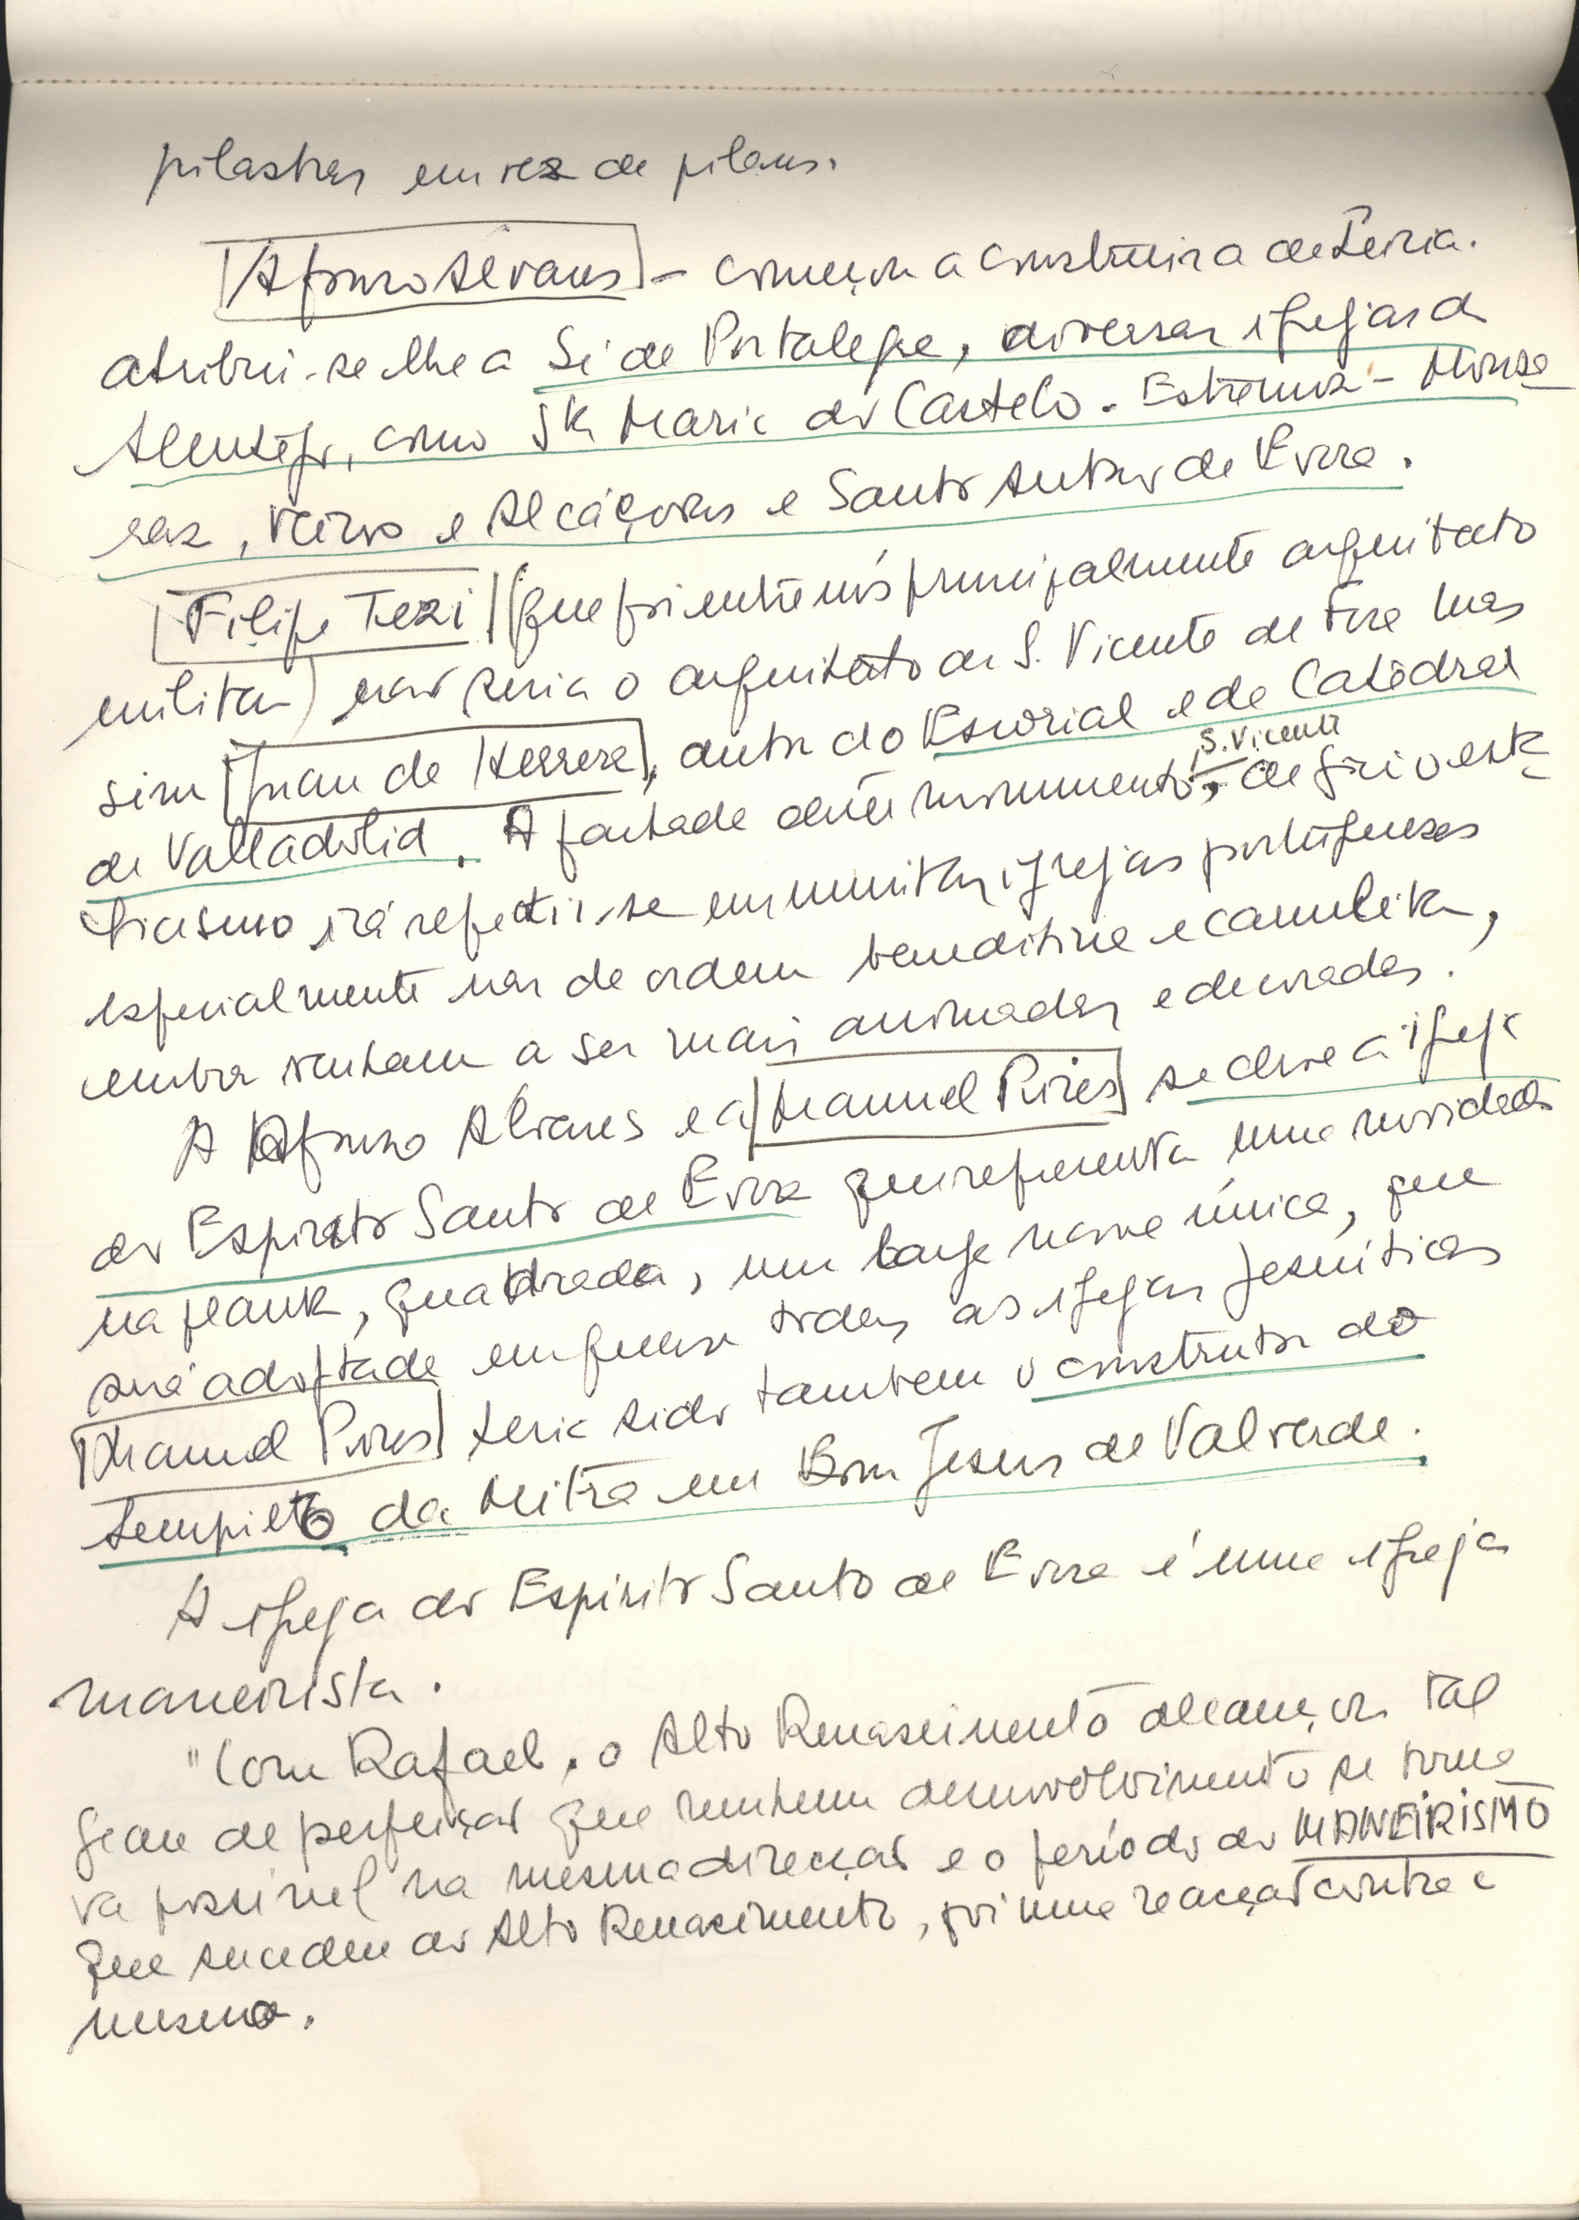 pilastras em vez de pilares.
Afonso Álvares - começou a construir a de Leiria.
atribui-se lhe a Sé de Portalegre, diversas igrejas do
Alentejo, como Sta Maria do Castelo. Estremoz - Monsa
raz, Veiros e Alcáçovas e Santo Antão de Évora.
Filipe Terzi (que foi entre nós principalmente arquitecto
militar) não seria o arquitecto de S. Vicente de Fora mas
sim Juan de Herrera, autor do Escorial e da Catedral
de Valladolid. A fachada deste monumento, S. Vicente de frio está
ticismo irá repetir-se em muitas igrejas portuguesas
especialmente nas da ordem beneditina e carmelita,
embora venham a ser mais animadas e decoradas.
A Afonso Álvares e a Manuel Pires se deve a igreja
do Espirito Santo de Évora que representa uma novidade
na planta, quadrada, uma larga nave única, que
será adoptada em quase todas as igrejas jesuíticas
Manuel Pires teria sido tambem o construtor do
templeto da Mitra em Bom Jesus de Valverde.
A igreja do Espirito Santo de Évora é uma igreja
maneirista.
"Com Rafael, o Alto Renascimento alcançou tal
grau de perfeição que nenhum desenvolvimento se torna
va possivel na mesma direcção e o período do MANEIRISMO
que sucedeu ao Alto Renascimento, foi uma reacção contra o
mesmo.